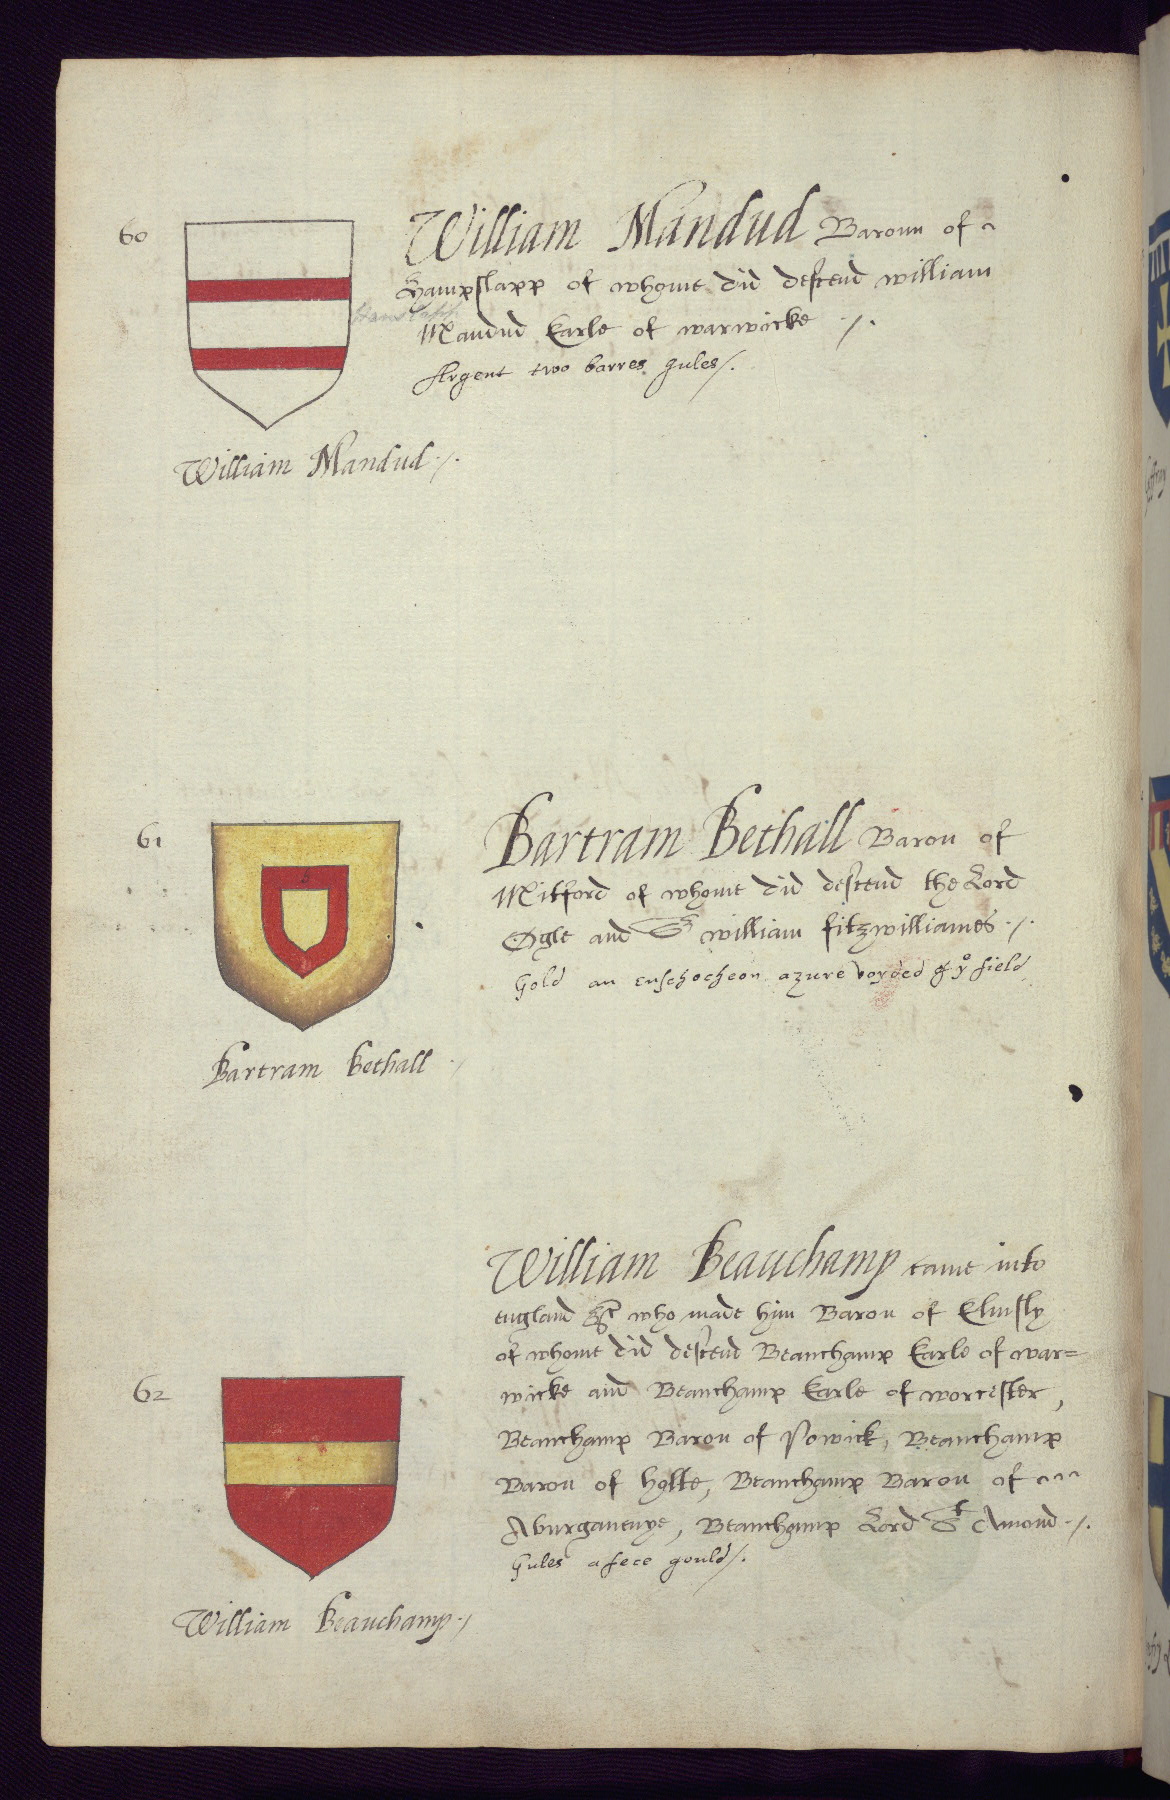 60
William Mandud Baronn of
Hampslapp of whome did descend william
Mandud Earle of warwicke ./.
Argent two barres gules/.
William Mandud ./.
61
Bartram Bethall Baron of
Mitford of whome did descend the Lord
Ogle and Sr william fitzwilliames ./.
Gold an enschocheon azure voyded of ye field
Bartram Bethall ./
William Beauchamp came into
england who made him Baron of Elmsly
of whome did descend Beauchamp Earle of war=
62
wicke and Beauchamp Earle of worcester,
Beauchamp Baron of Powick, Beauchamp
Baron of holte, Beauchamp Baron of
Aburgauenye, Beauchamp Lord St Amond ./.
Gules a fece gould/.
William Beauchamp ./